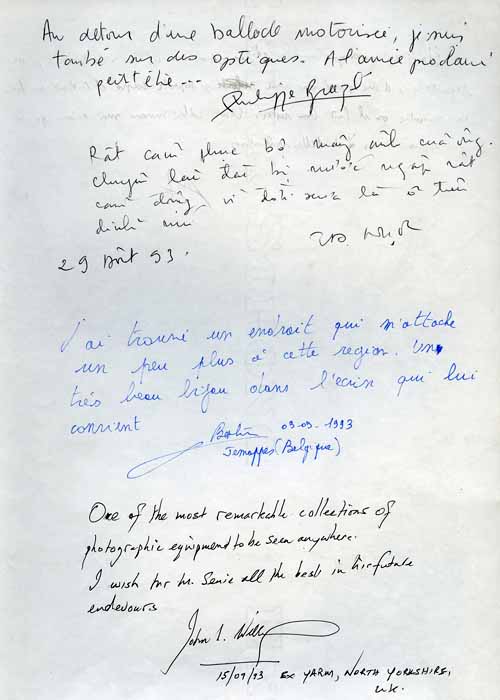 Au détour d'une ballade motorisée, je suis
tombé sur des optiques. A l'année prochaine
peut être...
Philippe
Rất cảm phục bộ máy
chuyện lâu đài bị nước ngập rất
cảm động, vì
đỉnh núi
29 Août 93.
J'ai trouvé un endroit qui m'attache
un peu plus à cette region. Un
très beau bijou dans l'écrin qui lui
convient
09-09-1993
Jemappes (Belgique)
One of the most remarkable collections of
photographic equipment to be seen anywhere.
I wish Mr M. Senie all the best in his future
endevours
John L. Willy
15/09/93 Ex YARM, NORTH YORKSHIRE,
UK.